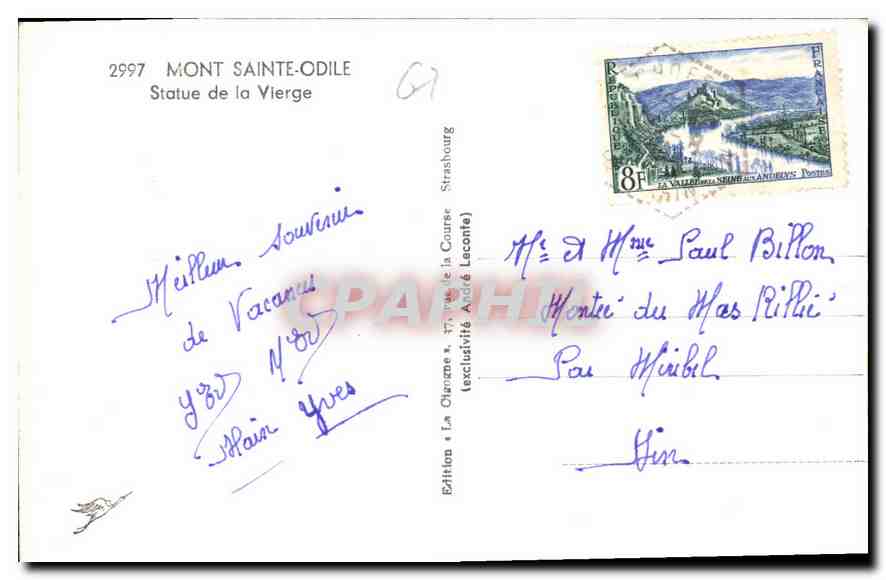 2997 MONT SAINTE-ODILE
Statue de la Vierge
G7
Meilleur souvenir
de Vacances
Alain Yves
Edition « La Cigogne », 37, rue de la Course Strasbourg
(exclusivité André Leconte)
REPUBLIQUE
FRANCAISE
8F
LA VALLÉE DE LA SEINE AUX ANDELYS POSTES
Mr et Mme Paul Billon
Montée du Mas Rillié
Par Miribel
Ain
CPAPHIL